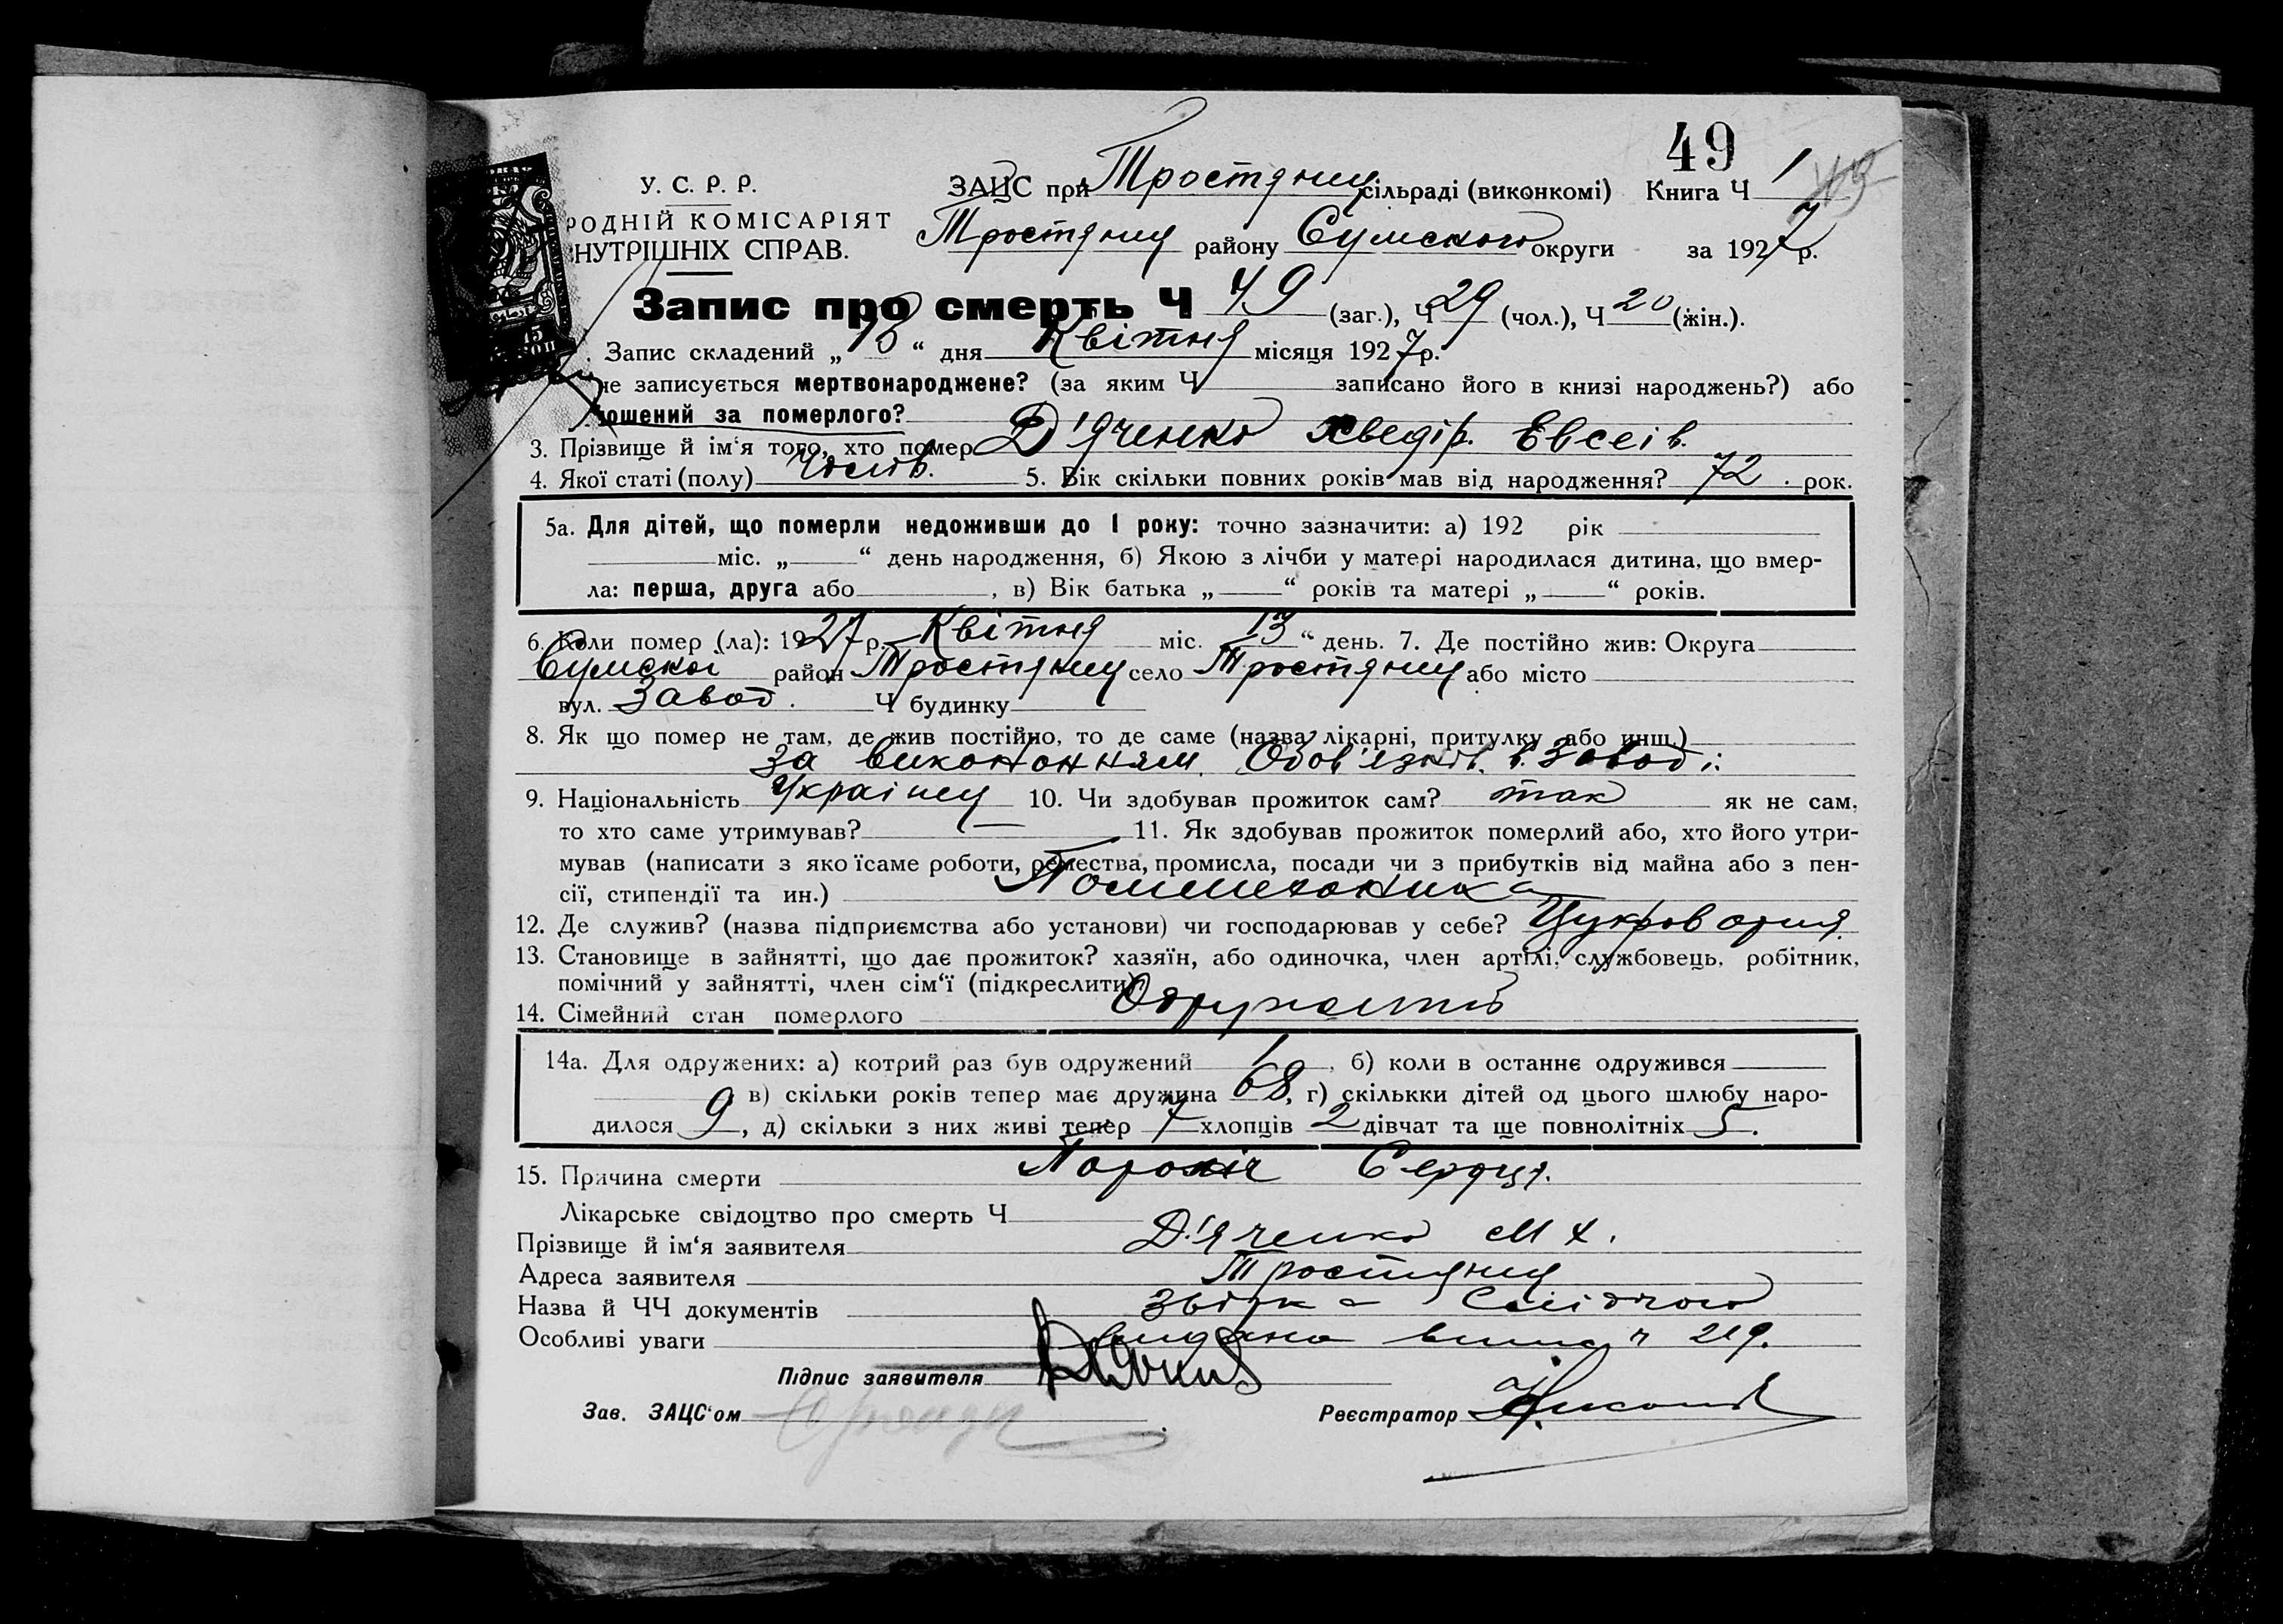 49
У. С. Р. Р. ЗАЦС при Тростянец сільраді (виконкомі) Книга Ч 1
РОДНІЙ КОМІСАРІЯТ
НУТРІШНІХ СПРАВ. Тростянец району Сумського округи за 1927 р.
Запис про смерть Ч 49 (заг.), Ч 29 (чол.), Ч 20 (жін.).
Запис складений „ “ дня Квітня місяця 1927 р.
не записується мертвонароджене? (за яким Ч записано його в книзі народжень?) або
ошений за померлого?
3. Прізвище й ім‘я того, хто помер Д'яченко Хведір. Евсеів.
4. Якої статі (полу) Чолов. 5. Вік скільки повних років мав від народження? 72 рок.
5а. Для дітей, що померли недоживши до 1 року: точно зазначити: а) 192 рік
міс. „ “ день народження, б) Якою з лічби у матері народилася дитина, що вмер-
ла: перша, друга або , в) Вік батька „ “ років та матері „ “ років.
6. Коли помер (ла): 1927 р. Квітня міс. 13 “ день. 7. Де постійно жив: Округа
Сумскоі район Тростянец село Тростянец або місто
вул. Завод. Ч будинку
8. Як що помер не там, де жив постійно, то де саме (назва лікарні, притулку або инш.)
за виконанням. Обов'язків. в. Заводі:
9. Національність Украінец 10. Чи здобував прожиток сам? так як не сам,
то хто саме утримував? — 11. Як здобував прожиток померлий або, хто його утри-
мував (написати з якоїсаме роботи, ремества, промисла, посади чи з прибутків від майна або з пен-
сії, стипендії та ин.)
12. Де служив? (назва підприємства або установи) чи господарював у себе? Цукроварня.
13. Становище в зайнятті, що дає прожиток? хазяїн, або одиночка, член артілі, службовець, робітник,
помічний у зайнятті, член сім‘ї (підкреслити)
14. Сімейний стан померлого Одружений
14а. Для одружених: а) котрий раз був одружений 1, б) коли в останнє одружився
в) скільки років тепер має дружина 68, г) скількки дітей од цього шлюбу наро-
дилося 9, д) скільки з них живі тепер 7 хлопців 2 дівчат та ще повнолітніх 5.
15. Причина смерти Сердця.
Лікарське свідоцтво про смерть Ч
Прізвище й ім‘я заявителя Д'яченко М Х.
Адреса заявителя Тростянец
Назва й ЧЧ документів
Особливі уваги видано 219.
Підпис заявителя
Зав. ЗАЦС‘ом Реєстратор